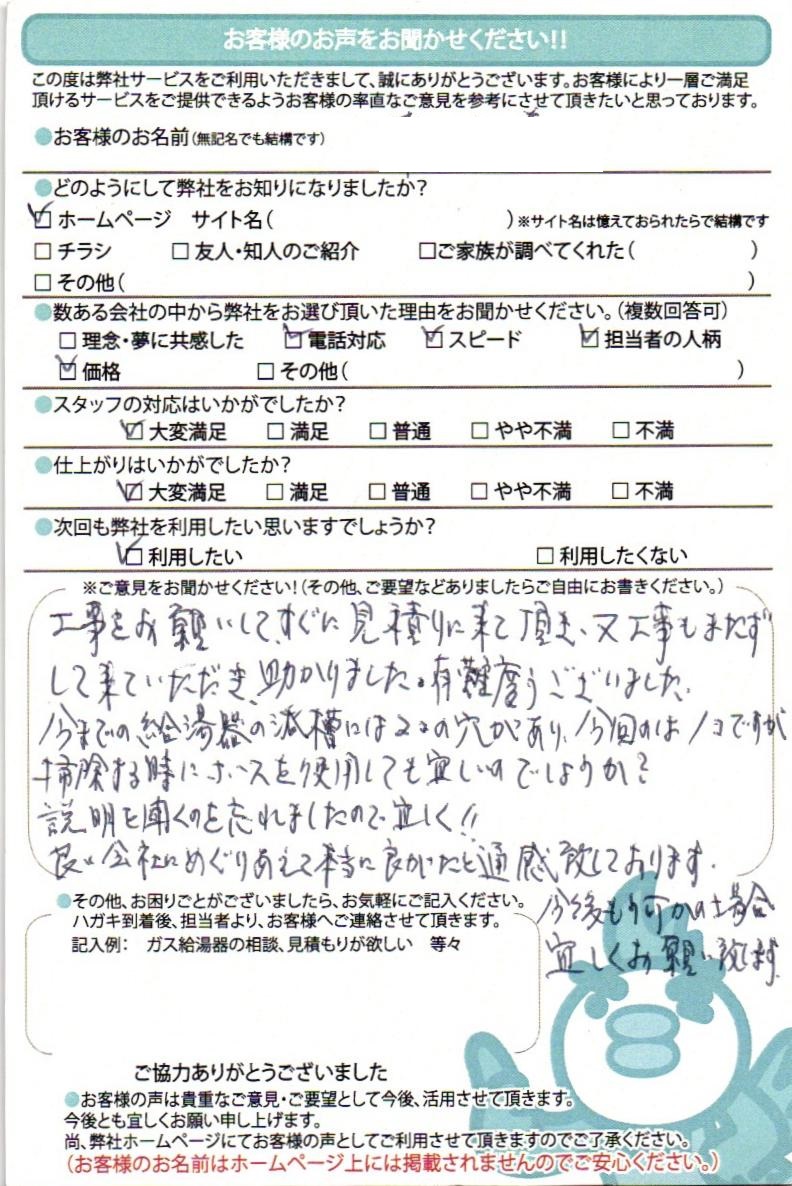 お客様のお声をお聞かせください!!
この度は弊社サービスをご利用いただきまして、誠にありがとうございます。お客様により一層ご満足
頂けるサービスをご提供できるようお客様の率直なご意見を参考にさせて頂きたいと思っております。
●お客様のお名前(無記名でも結構です)
●どのようにして弊社をお知りになりましたか?
☑ホームページ サイト名( )※サイト名は憶えておられたらで結構です
□チラシ □友人・知人のご紹介 □ご家族が調べてくれた( )
□その他( )
●数ある会社の中から弊社をお選び頂いた理由をお聞かせください。(複数回答可)
□理念・夢に共感した ☑電話対応 ☑スピード ☑担当者の人柄
☑価格 □その他( )
●スタッフの対応はいかがでしたか?
☑大変満足 □満足 □普通 □やや不満 □不満
●仕上がりはいかがでしたか?
☑大変満足 □満足 □普通 □やや不満 □不満
●次回も弊社を利用したい思いますでしょうか?
☑利用したい □利用したくない
※ご意見をお聞かせください!(その他、ご要望などありましたらご自由にお書きください。)
工事をお願いして、すぐに見積りに来て頂き、又工事もまたず
して来ていただき、助かりました。有難度うございました。
今までの給湯器の浴槽には2コの穴があり、今回のは1コですが
掃除する時にホースを使用しても宜しいのでしょうか?
説明を聞くのを忘れましたので宜しく!!
良い会社にめぐりあえて本当に良かったと通感致しております。
今後も何かの場合
宜しくお願い致します。
●その他、お困りごとがございましたら、お気軽にご記入ください。
ハガキ到着後、担当者より、お客様へご連絡させて頂きます。
記入例： ガス給湯器の相談、見積もりが欲しい 等々
ご協力ありがとうございました
●お客様の声は貴重なご意見・ご要望として今後、活用させて頂きます。
今後とも宜しくお願い申し上げます。
尚、弊社ホームページにてお客様の声としてご利用させて頂きますのでご了承ください。
(お客様のお名前はホームページ上には掲載されませんのでご安心ください。)